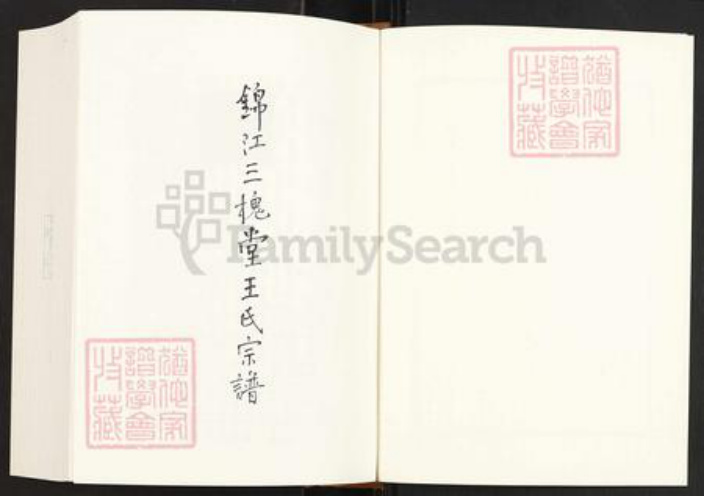 錦江三槐堂王氏宗譜
猶他家
譜學會
特藏
猶他家
譜學會
特藏
FamilySearch